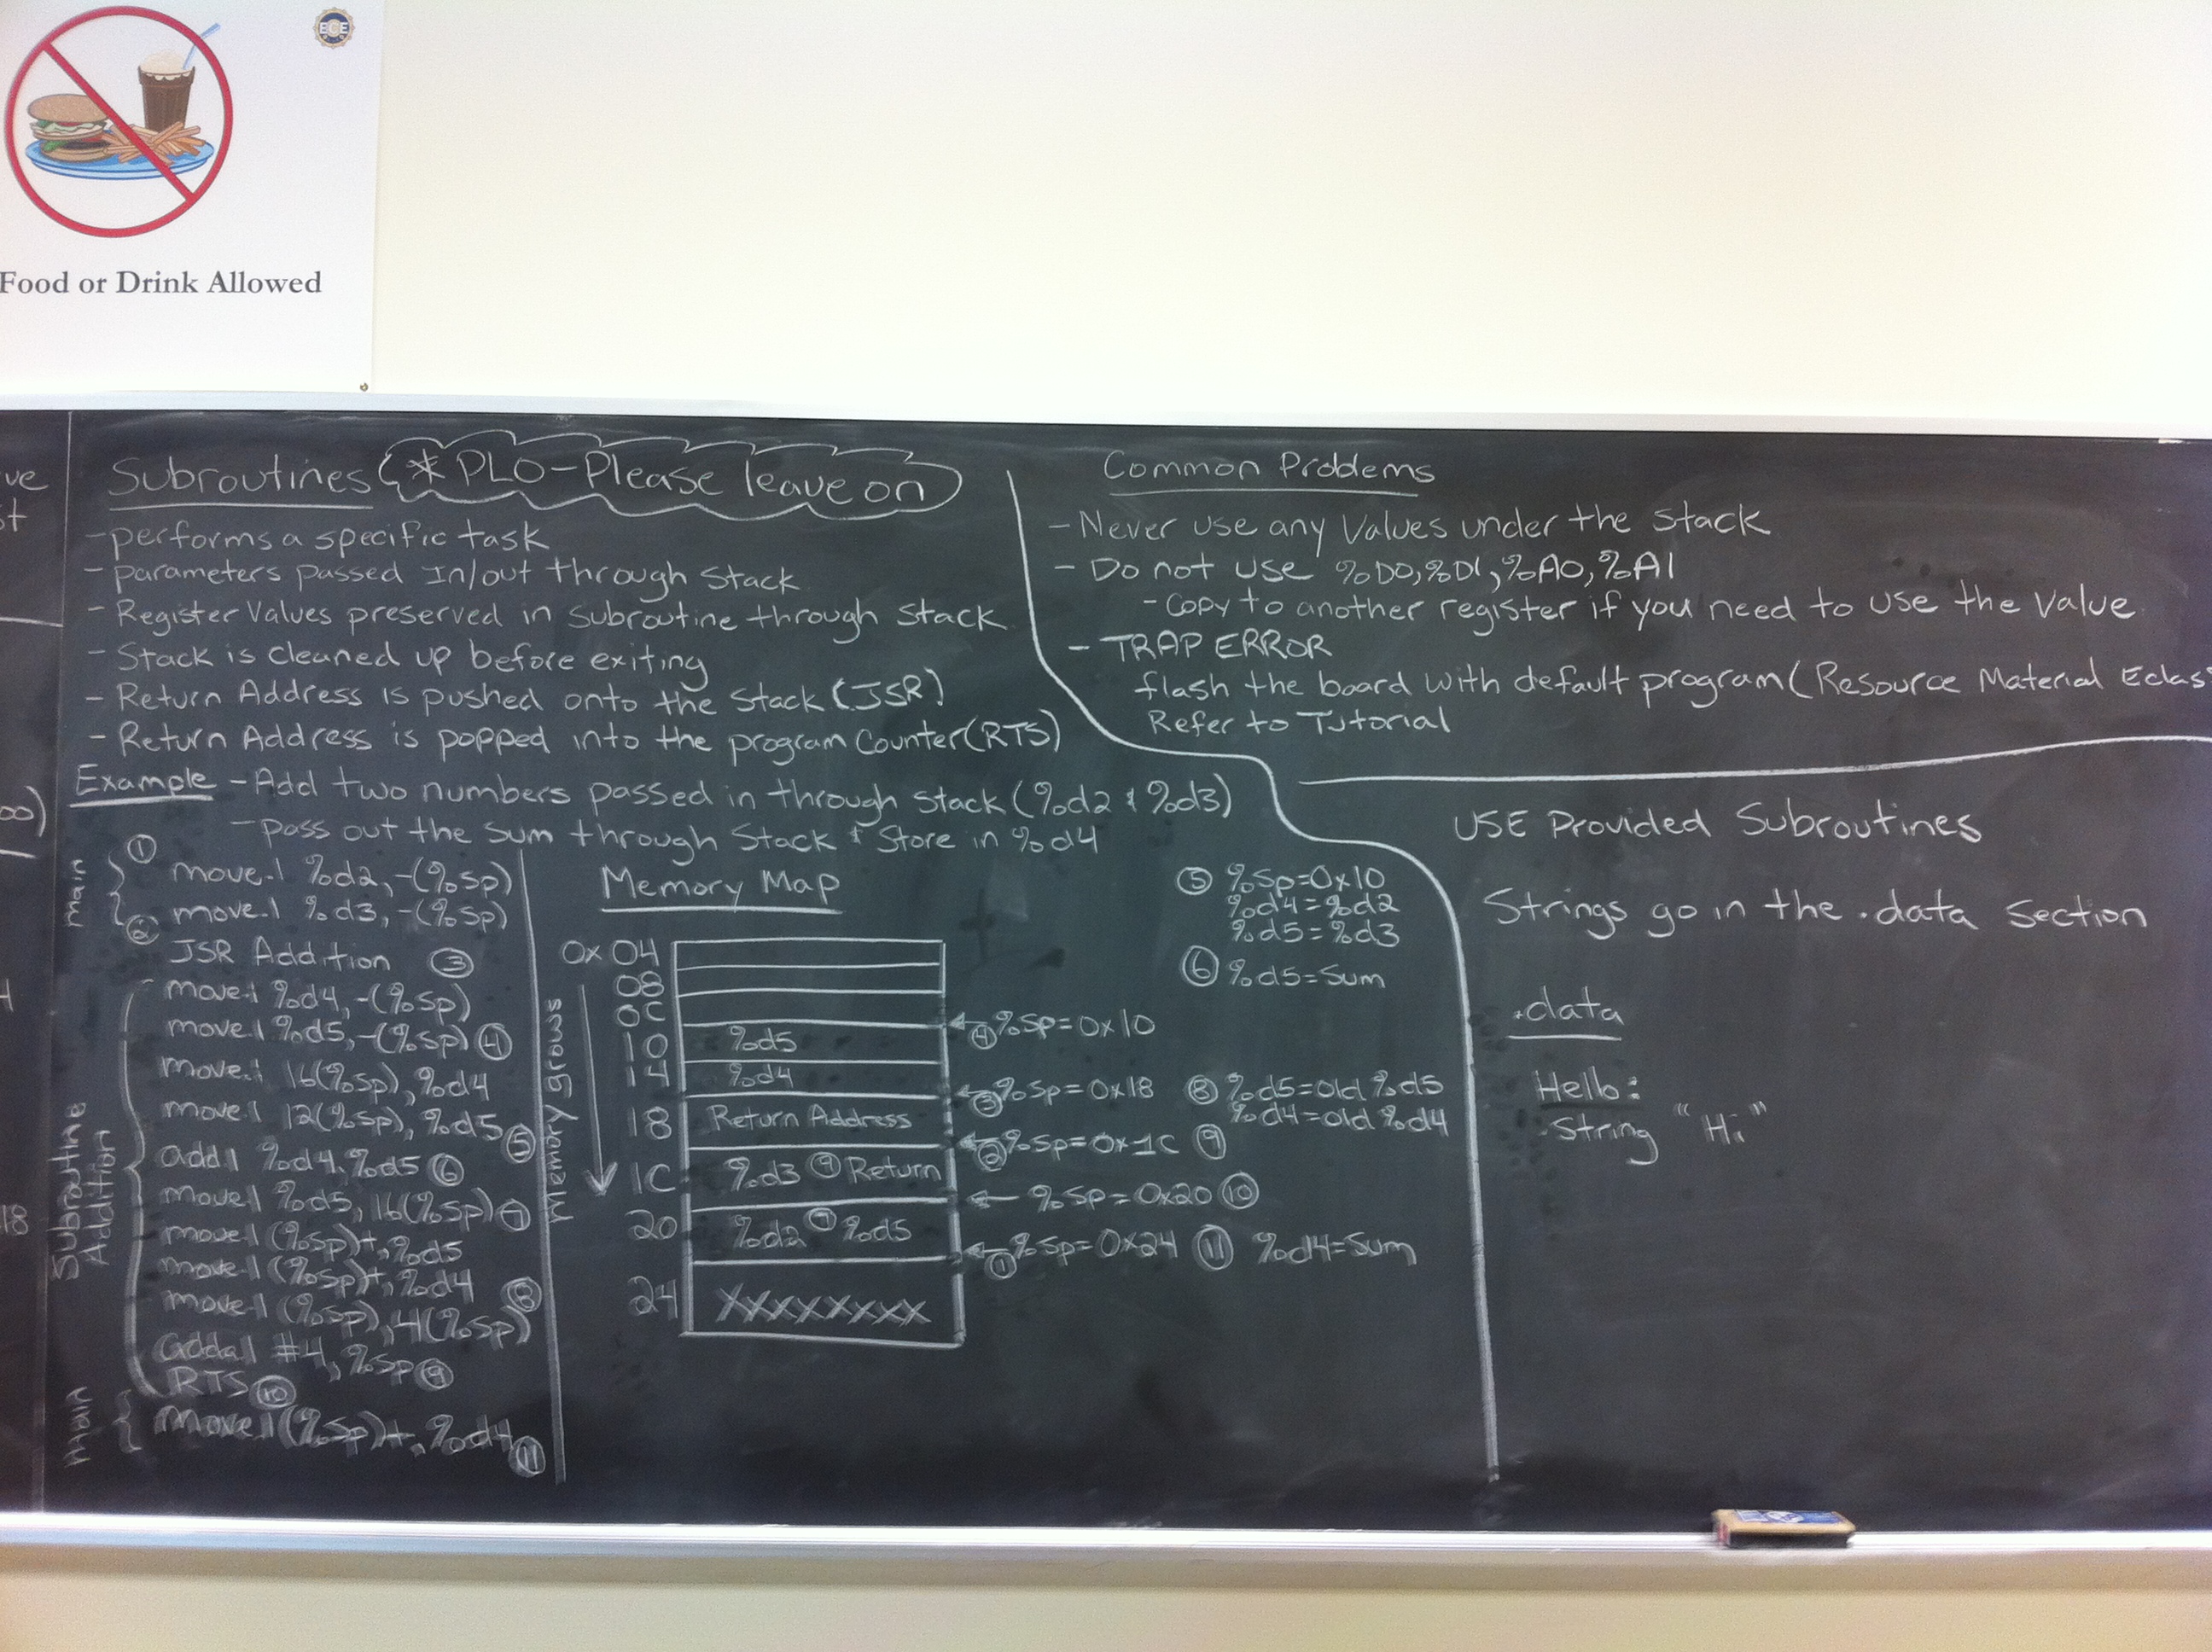 ECE
Food or Drink Allowed
ve
st
00)
4
18
Subroutines (* PLO-Please leave on
- performs a specific task
- parameters passed In/out through Stack
- Register Values preserved in Subroutine through Stack
- Stack is cleaned up before exiting
- Return Address is pushed onto the Stack (JSR)
- Return Address is popped into the program Counter(RTS)
Example - Add two numbers passed in through Stack (%d2 & %d3)
- pass out the sum through Stack & Store in %d4
main
① move.l %d2,-(%sp)
② move.l %d3,-(%sp)
JSR Addition ③
Subroutine Addition
move.l %d4,-(%sp)
move.l %d5,-(%sp) ④
move.l 16(%sp),%d4
move.l 12(%sp),%d5 ⑤
add.l %d4,%d5 ⑥
move.l %d5,16(%sp) ⑦
move.l (%sp)+,%d5
move.l (%sp)+,%d4 ⑧
move.l (%sp),4(%sp)
adda.l #4,%sp ⑨
RTS ⑩
main
move.l (%sp)+,%d4 ⑪
Memory Map
Memory grows
0x04
08
0C
10 %d5
14 %d4
18 Return Address
1C %d3 ⑨ Return
20 %d2 ⑦ %d5
24 XXXXXXXX
④ %sp=0x10
③ %sp=0x18
② %sp=0x1C ⑨
%sp=0x20 ⑩
① %sp=0x24 ⑪ %d4=Sum
⑤ %sp=0x10
%d4=%d2
%d5=%d3
⑥ %d5=Sum
⑧ %d5=old %d5
%d4=old %d4
Common Problems
- Never use any Values under the Stack
- Do not use %D0,%D1,%A0,%A1
- Copy to another register if you need to use the Value
- TRAP ERROR
flash the board with default program (Resource Material Eclass
Refer to Tutorial
USE Provided Subroutines
Strings go in the .data Section
.data
Hello:
.String "Hi"